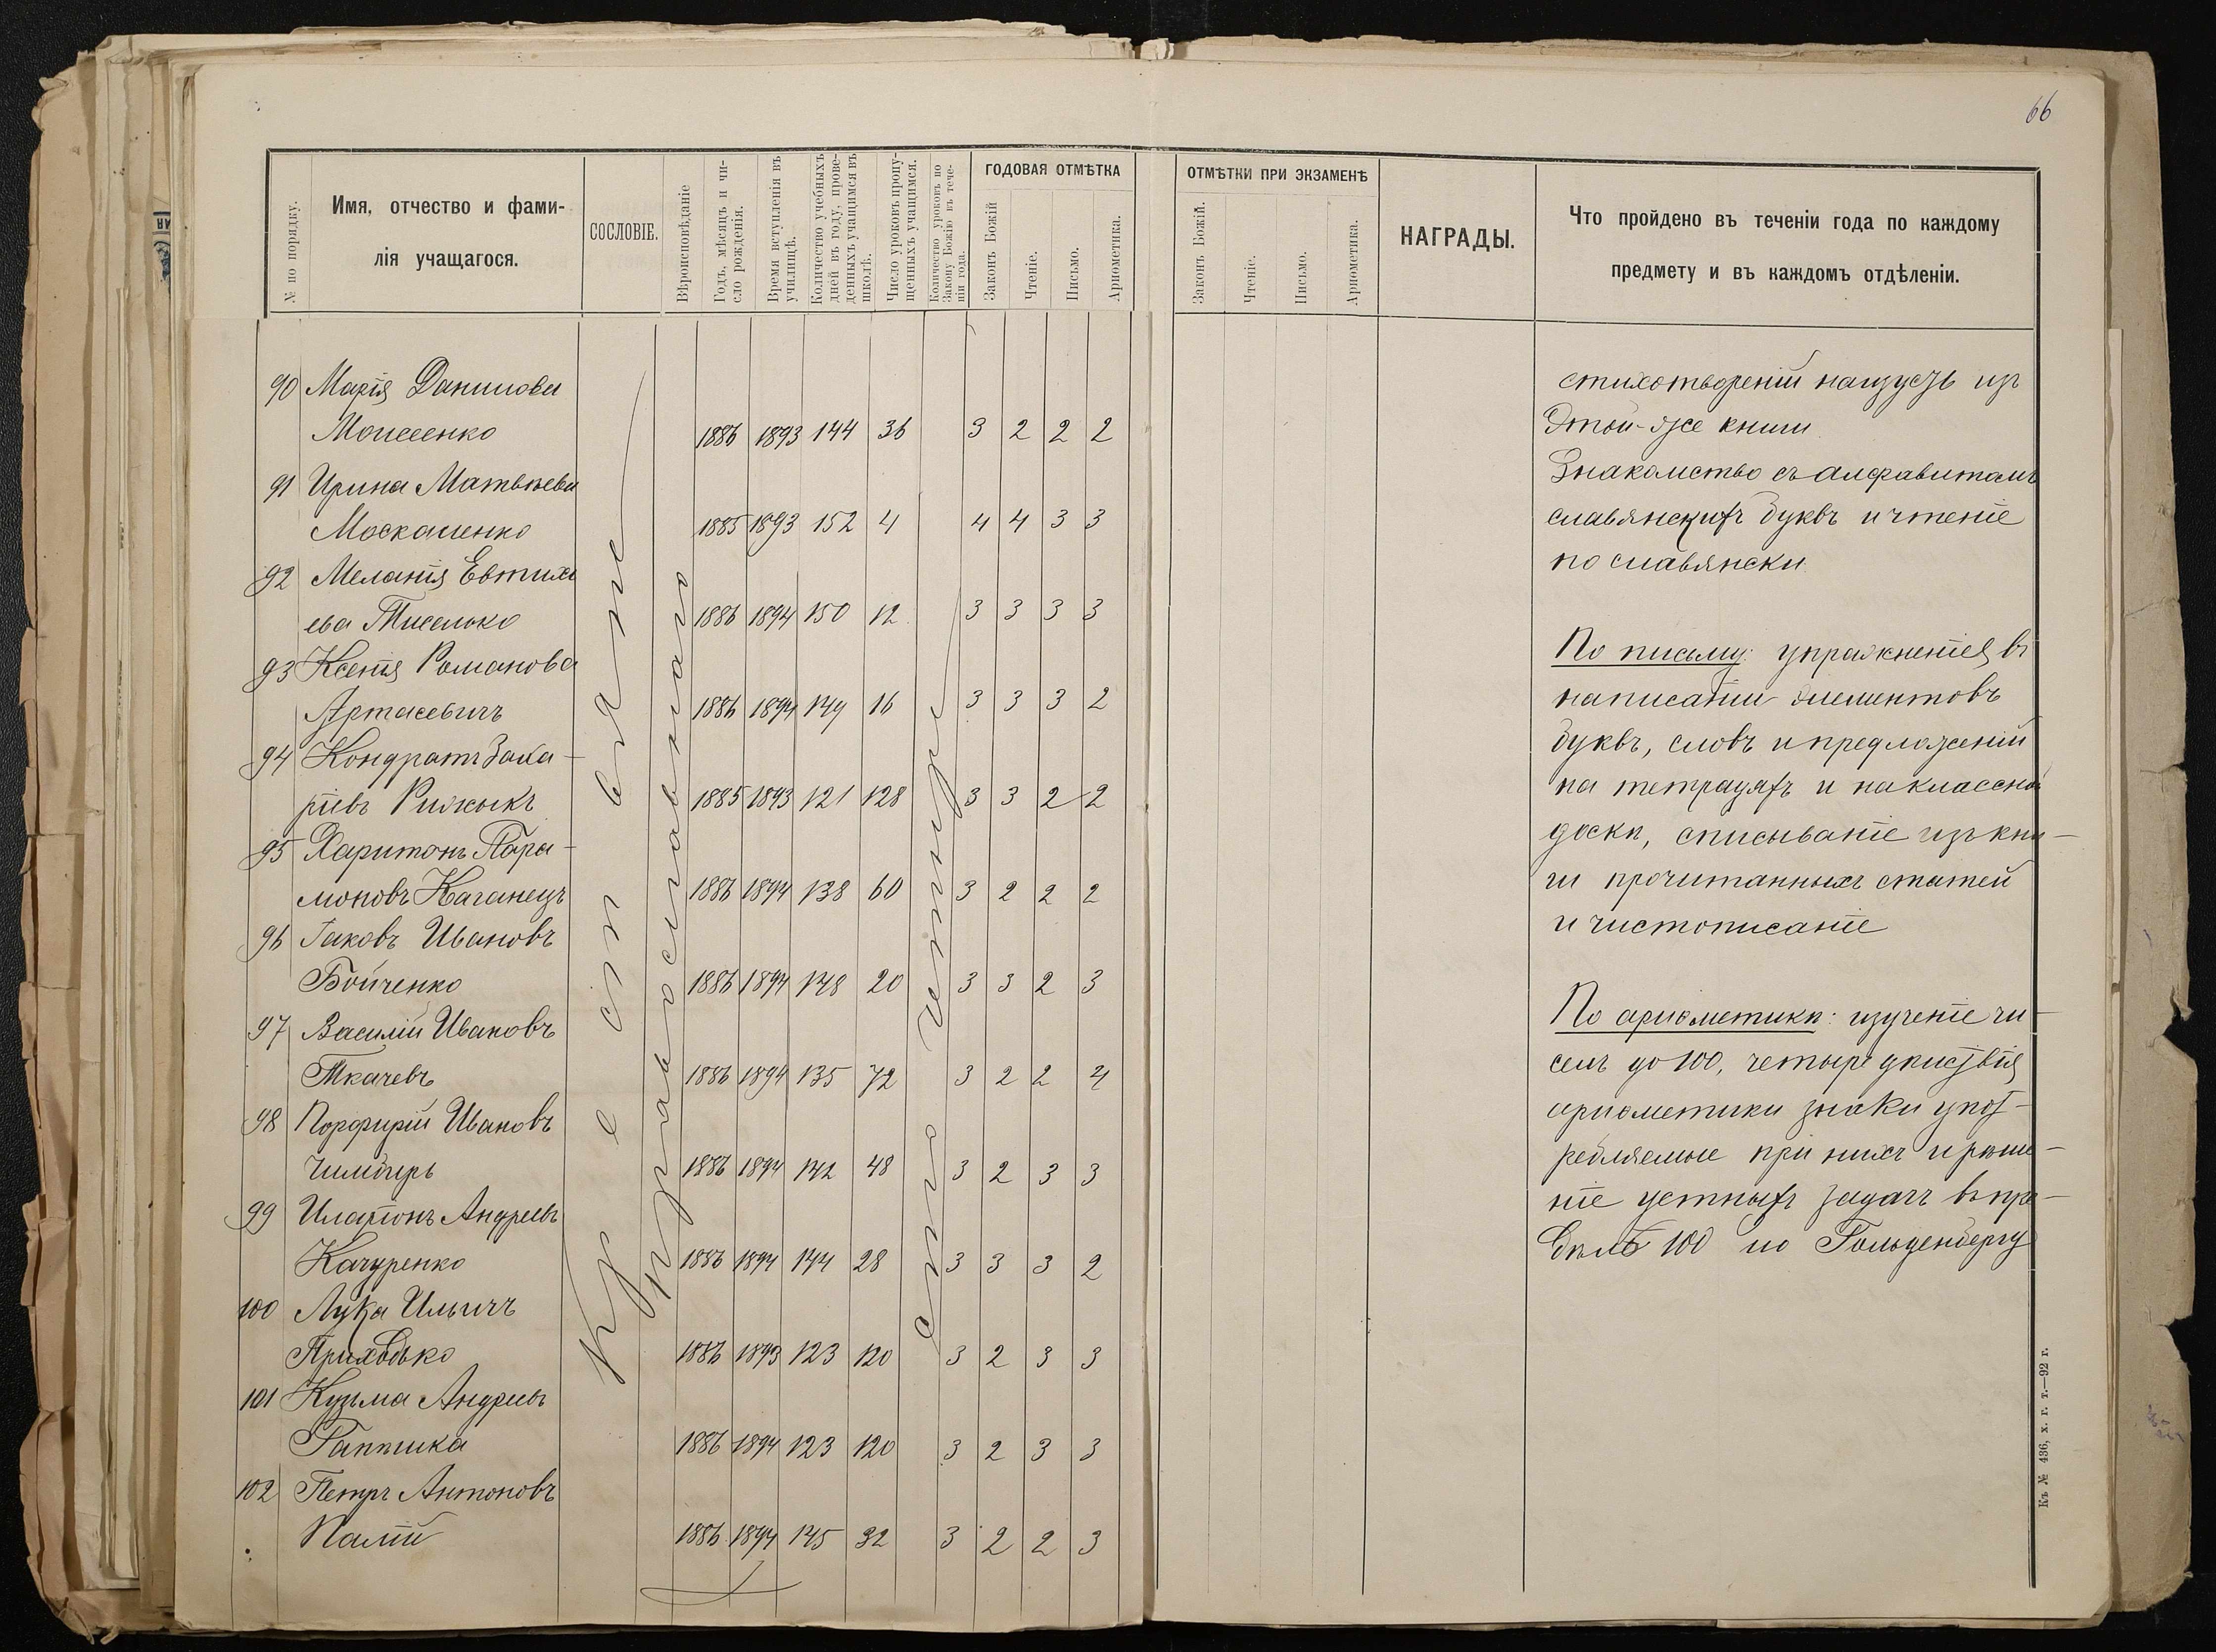 66
№ по порядку.
Имя, отчество и фами-
лія учащагося.
СОСЛОВІЕ.
Вѣроисповѣданіе
Годъ, мѣсяцъ и чи-
сло рожденія.
Время вступленія въ
училищѣ.
Количество учебныхъ
дней въ году, прове-
денныхъ учащимся въ
школѣ.
Число уроковъ пропу-
щенныхъ учащимся.
Количество уроковъ по
Закону Божію въ тече-
ніи года.
ГОДОВАЯ ОТМѢТКА
Законъ Божій
Чтеніе.
Письмо.
Ариѳметика.
ОТМѢТКИ ПРИ ЭКЗАМЕНѢ
Законъ Божій.
Чтеніе.
Письмо.
Ариѳметика.
НАГРАДЫ.
Что пройдено въ теченіи года по каждому
предмету и въ каждомъ отдѣленіи.
90 Марія Данилова
Моисеенко 1886 1893 144 36 3 2 2 2
91 Ирина Матвѣева
Москаленко 1885 1893 152 4 4 4 3 3
92 Меланія Евтихі
ева Тиселько 1886 1894 150 12 3 3 3 3
93 Ксенія Романова
Артасевичъ 1886 1894 149 16 3 3 3 2
94 Кондратъ Заха-
ріевъ Рижыкъ 1885 1893 121 128 3 3 2 2
95 Харитонъ Пара-
моновъ Каганецъ 1886 1894 138 60 3 2 2 2
96 Іаковъ Ивановъ
Бойченко 1886 1894 148 20 3 3 2 3
97 Василій Ивановъ
Ткачевъ 1886 1894 135 72 3 2 2 4
98 Порфирій Ивановъ
Чимбирь 1886 1894 142 48 3 2 3 3
99 Иларіонъ Андреевъ
Качуренко 1886 1894 144 28 3 3 3 2
100 Лука Ильичъ
Приходько 1886 1893 123 120 3 2 3 3
101 Кузьма Андреевъ
Гаптика 1886 1894 123 120 3 2 3 3
102 Петръ Антоновъ
Палій 1886 1894 145 32 3 2 2 3
Крестьяне
Православнаго
сто четыре
стихотвореній наизусть изъ
этой-же книги
Знакомство съ алфавитомъ
славянскихъ буквъ и чтеніе
по славянски
По письму: упражненія въ
написаніи элементовъ
буквъ, словъ и предложеній
на тетрадяхъ и на классной
доскѣ, списываніе изъ кни-
ги прочитанныхъ статей
и чистописаніе
По ариѳметикѣ: изученіе чи-
селъ до 100, четыре дѣйствія
ариѳметики знаки упот-
ребляемые при нихъ и рѣше-
ніе устныхъ задачъ въ пре-
дѣлѣ 100 по Гольденбергу
Къ № 436, х. г. т.—92 г.